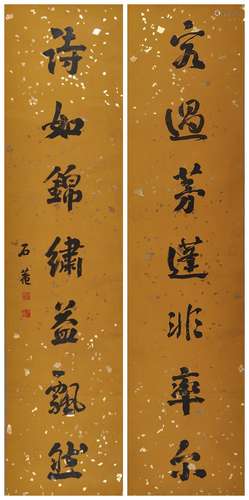 客過茅蓬非率尔
詩如錦繡益飄然
石菴